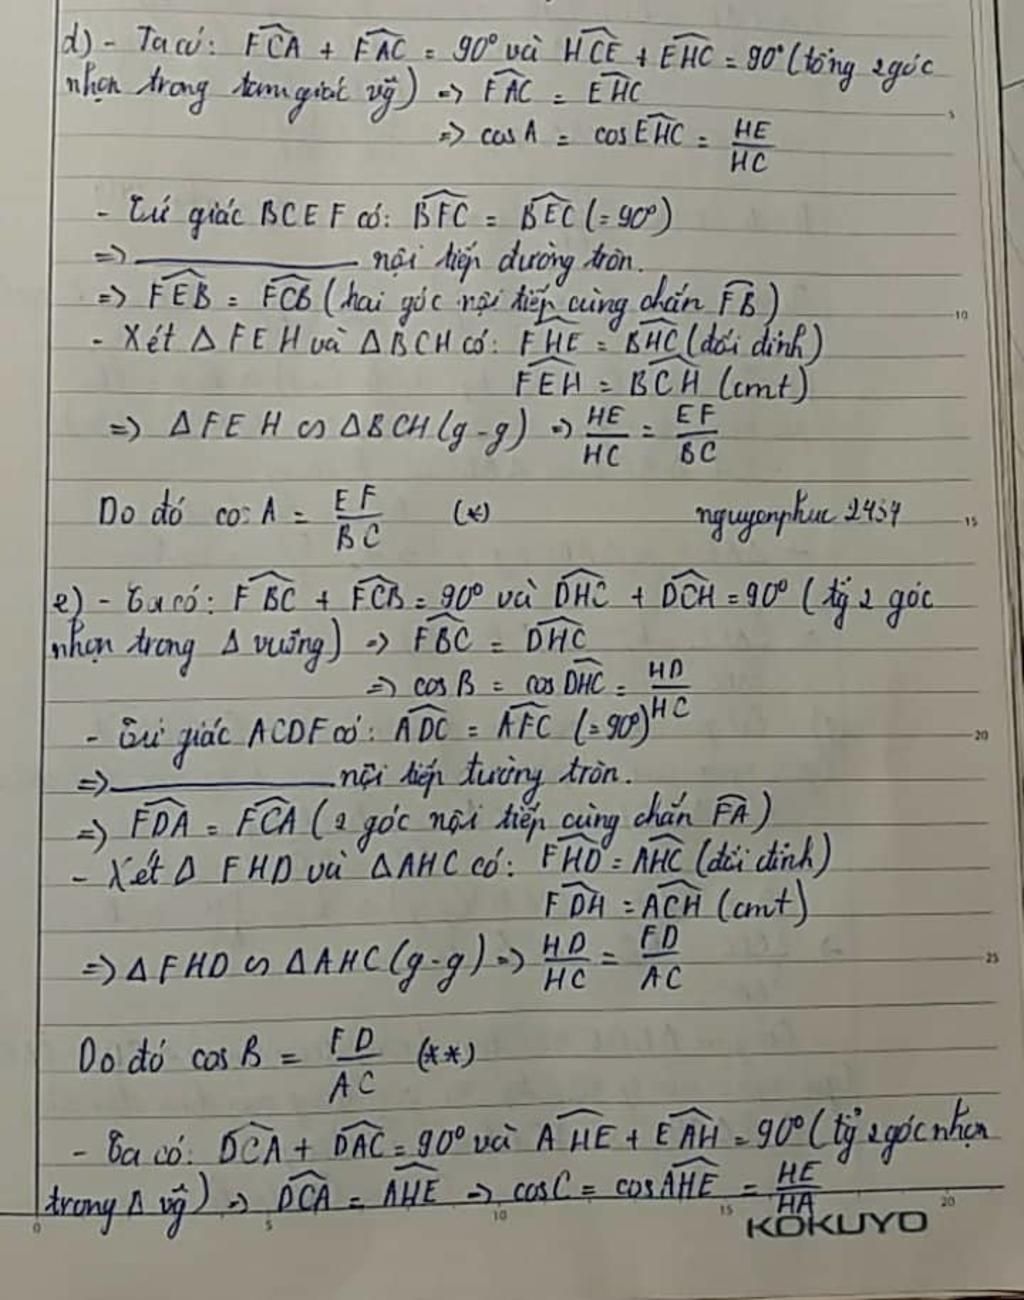 d) - Ta có: FCA + FAC = 90° và HCE + EHC = 90° (tổng 2 góc
nhọn trong tam giác vg) => FAC = EHC
=> cos A = cos EHC = HE/HC
- Tứ giác BCEF có: BFC = BEC (= 90°)
=> ________ nội tiếp đường tròn.
=> FEB = FCB (hai góc nội tiếp cùng chắn FB)
- Xét Δ FEH và Δ BCH có: FHE = BHC (đối đỉnh)
FEH = BCH (cmt)
=> Δ FEH ∽ Δ BCH (g-g) => HE/HC = EF/BC
Do đó cos A = EF/BC (*) nguyenphuc 2437
e) - Ta có: FBC + FCB = 90° và DHC + DCH = 90° (tg 2 góc
nhọn trong Δ vuông) => FBC = DHC
=> cos B = cos DHC = HD/HC
- Tứ giác ACDF có: ADC = AFC (= 90°)
=> ________ nội tiếp tường tròn.
=> FDA = FCA (2 góc nội tiếp cùng chắn FA)
- Xét Δ FHD và Δ AHC có: FHD = AHC (đối đỉnh)
FDH = ACH (cmt)
=> Δ FHD ∽ Δ AHC (g-g) => HD/HC = FD/AC
Do đó cos B = FD/AC (**)
- Ta có: DCA + DAC = 90° và AHE + EAH = 90° (tg 2 góc nhọn
trong Δ vg) => DCA = AHE => cos C = cos AHE = HE/HA
KOKUYO